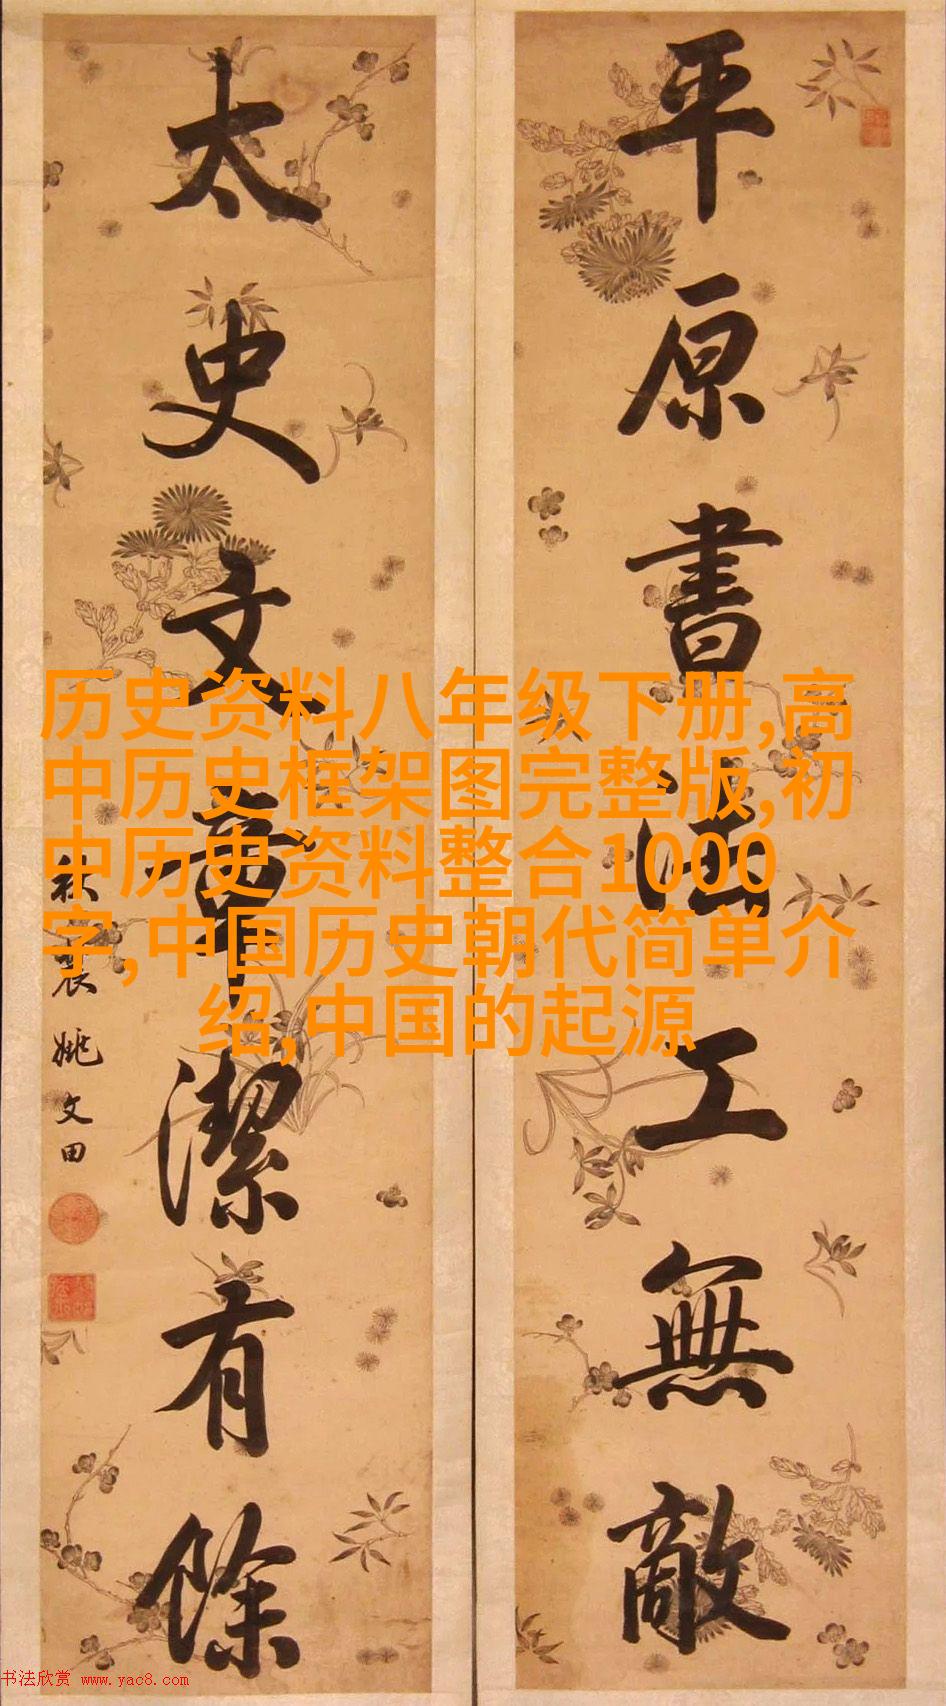 平原書法工無敵
太史文章潔有餘
秋農姚文田
历史资料八年级下册,高
中历史框架图完整版,初
中历史资料整合1000
字,中国历史朝代简单介
绍,中国的起源
书法欣赏 www.yac8.com